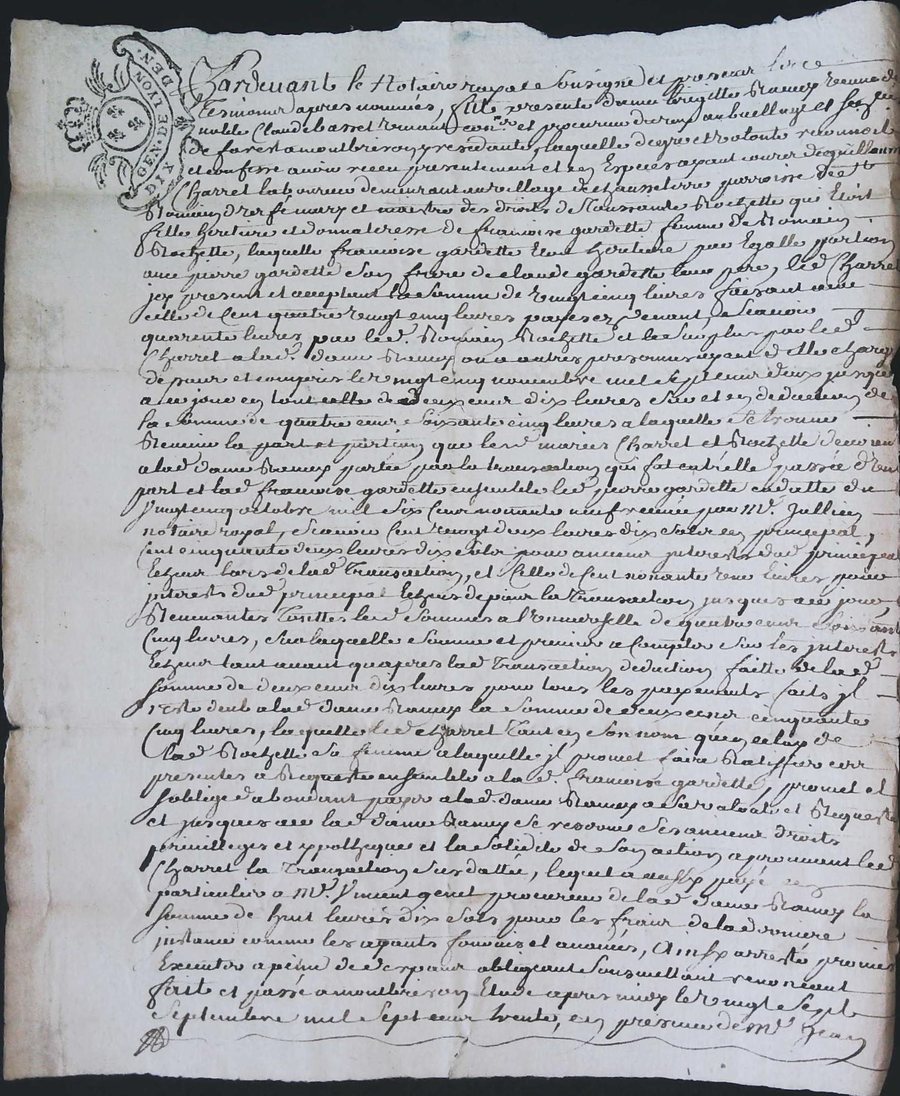 GEN. DE LION
DIX DEN.
Pardevant le Notaire royal Soussigné et presence des
Tesmoins apres nommés, fut presente dame brigitte Ramey veuve de
noble Claude basset vivant con.er et procureur du roy au bailliage et
de forest a montbrison y residante, laquelle de gre et volonte reconnoit
et confesse avoir receu presentement et en Especes ayant cours de guillaume
Charret laboureur demeurant au village de Chausseterre parroisse de S.t
Romain d'urfé mary et maistre des droits de Toussainte Rochette qui Etoit
fille heritiere et donnateresse de francoise gardette femme de Romain
Rochette, laquelle francoise gardette Etoit heritiere par Egalle portion
avec pierre gardette Son frere de claude gardette leur pere, led Charret
icy present et acceptant la Somme de vingt cinq livres faisant avec
celle de Cent quatre vingt cinq livres payesez devant, Scavoir
quarente livres par led. Romain Rochette et le Surplus par led
Charret a lad. dame Ramey ou a autres personnes ayant d'elle charge
depuis et compris le vingt cinq novembre mil Sept cent deux jusques
a ce jour en tout celle de deux cent dix livres Sur et en deduction de
la Somme de quatre cent Soixante cinq livres a laquelle Se trouve
Revenir la part et portion que led. mariés Charret et Rochette devoient
a lad dame Ramey portée par la transaction qui fut entr'elle passée d'une
part et lad francoise gardette ensemble led pierre gardette en datte du
vingt cinq octobre mil Six Cent nonante neuf receüe par M.e Jullien
notaire royal, Scavoir Cent vingt deux livres dix Sols en principal,
Cent cinquante deux livres dix Sols pour anciens interests dud principal
Escheus lors de lad Transaction, et Celle de Cent nonante livres pour
interests dud principal Escheus depuis la Transaction jusques a ce jour,
Revenantes Touttes lesd Sommes a l'universelle de quatre cent Soixante
Cinq livres, Sur laquelle Somme et premier a Compter Sur les interests
Escheus tant avant qu'apres lad Transaction deduction faitte de lad
Somme de deux cent dix livres pour tous les payements faits il
reste deub a lad dame Ramey la Somme de deux cent cinquante
Cinq livres, laquelle led Charret Tant en Son nom qu'en celuy de
lad Rochette Sa femme a laquelle il promet faire Ratiffier ces
presentes a Requeste ensemble a lad. francoise gardette, promet et
S'oblige d'abondant payer a lad dame Ramey a Sa volonté et Requeste
et jusques a ce lad dame Ramey Se reserve Ses anciens droits
privilleges et ypotheques et la Solidité de Son action aprouvant led
Charret la Transaction Susdattée, lequel a aussy payé en
particulier a M.e Vincent genet procureur de lad dame Ramey la
Somme de huit livres dix Sols pour les frais de la derniere
instance comme les ayants fournis et avancés, Ainsy arresté promis
Executer a peine de despens obligeant Soumettant renonceant
fait et passé a montbrison Etude apres midy le vingt Sept
Septembre mil Sept cent trente, en presence de M.e Jean